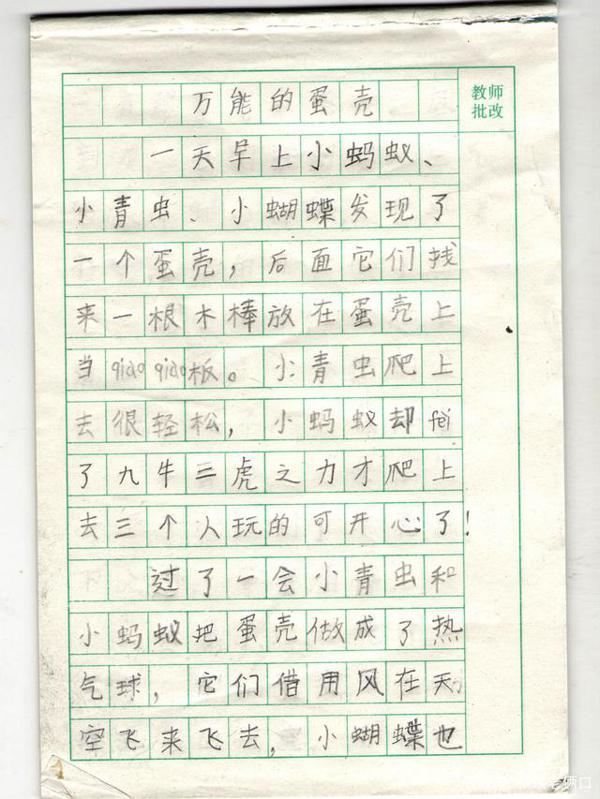 万能的蛋壳
教师
批改
一天早上小蚂蚁、
小青虫、小蝴蝶发现了
一个蛋壳，后面它们找
来一根木棒放在蛋壳上
当qiāo qiāo板。小青虫爬上
去很轻松，小蚂蚁却fèi
了九牛三虎之力才爬上
去三个人玩的可开心了！
过了一会小青虫和
小蚂蚁把蛋壳做成了热
气球，它们借用风在天
空飞来飞去，小蝴蝶也